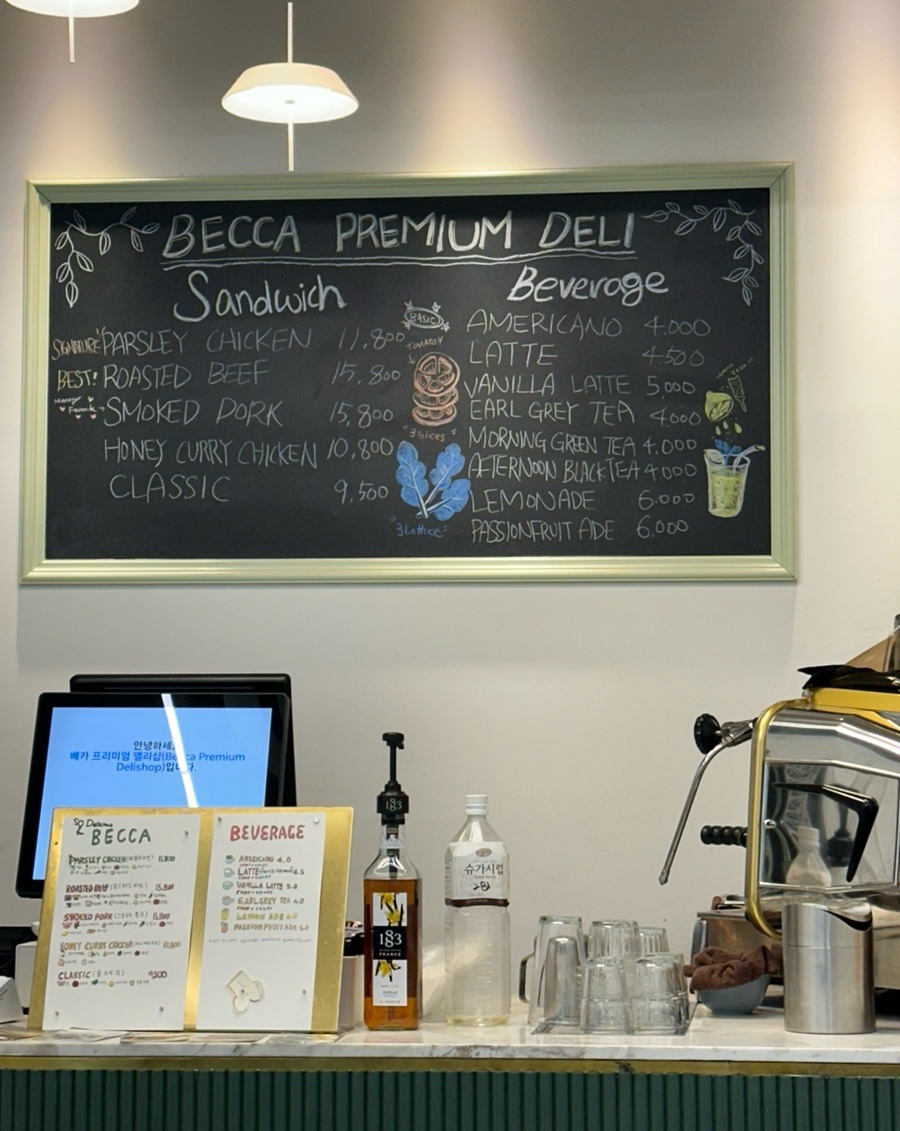 BECCA PREMIUM DELI
Sandwich
SIGNATURE PARSLEY CHICKEN 11,800
BEST! ROASTED BEEF 15,800
Manager Favorite SMOKED PORK 15,800
HONEY CURRY CHICKEN 10,800
CLASSIC 9,500
BASIC
TOMATO
"3 slices"
"3 Lettuce"
Beverage
AMERICANO 4.000
LATTE 4500
VANILLA LATTE 5,000
EARL GREY TEA 4,000
MORNING GREEN TEA 4.000
AFTERNOON BLACK TEA 4000
LEMONADE 6.000
PASSIONFRUIT ADE 6,000
안녕하세
베카 프리미엄 델리샵(Becca Premium
Delishop)입니다.
So Delicious
BECCA
PARSLEY CHICKEN 11,800
ROASTED BEEF 15,800
SMOKED PORK 15,800
HONEY CURRY CHICKEN 10,800
CLASSIC (클래식) 9,500
BEVERAGE
AMERICANO 4.0
LATTE 4.5
VANILLA LATTE 5.0
EARL GREY TEA 4.0
LEMON ADE 6.0
PASSION FRUIT ADE 6.0
183
183
FRANCE
슈가시럽